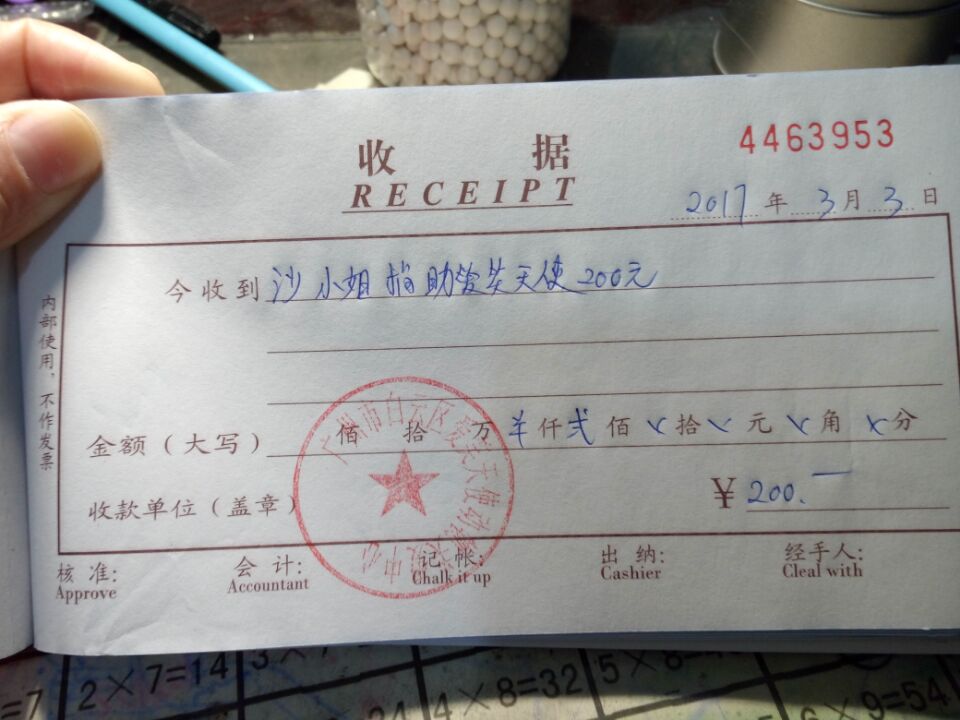 收 据
4463953
RECEIPT
2017 年 3 月 3 日
今收到 沙小姐捐助爱笑天使200元
内部使用，不作发票
金额（大写） 佰 拾 万 羊 仟 弍 佰 ㄨ 拾 ㄨ 元 ㄨ 角 ㄨ 分
收款单位（盖章） ¥ 200.一
广州市白云区爱笑天使动 中心
核 准: 会 计: 记 帐: 出 纳: 经手人:
Approve Accountant Chalk it up Cashier Cleal with
=7 2×7=14 3×7 4×8=32 5×8=4 6×9=54